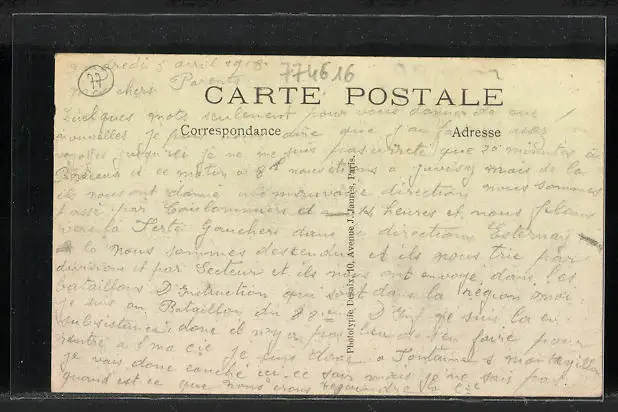 vendredi 5 avril 1918
77
774616
mes chers Parents
CARTE POSTALE
Quelques mots seulement pour vous donner de mes
nouvelles je puis dire que j'ai fait assez
Correspondance
Adresse
voyagé je ne me suis pas arrêté que 20 minutes à
Bordeaux et ce matin à 8h nous étions à Juvisy mais de la
ils nous ont donné une mauvaise direction nous sommes
passé par Coulommiers et 14 heures et nous filons
vers la Ferté Gauchers dans la direction Esternay
la nous sommes descendus et ils nous trie par
divisions et par Secteur et ils nous ont envoyé dans les
bataillons D'Instruction qui sont dans la région moi
je suis au Bataillon du 8 D'Inf je suis la en
subsistance donc il n'y a pas lieu de s'en faire pour
rentré a ma cie je suis donc a Fontaine s montaiguillon
je vais donc couché ici ce soir mais je ne sais pas
quand est ce que nous irons rejoindre la Cie
Phototypie Desaix, 10, Avenue J. Jaurès, Paris.